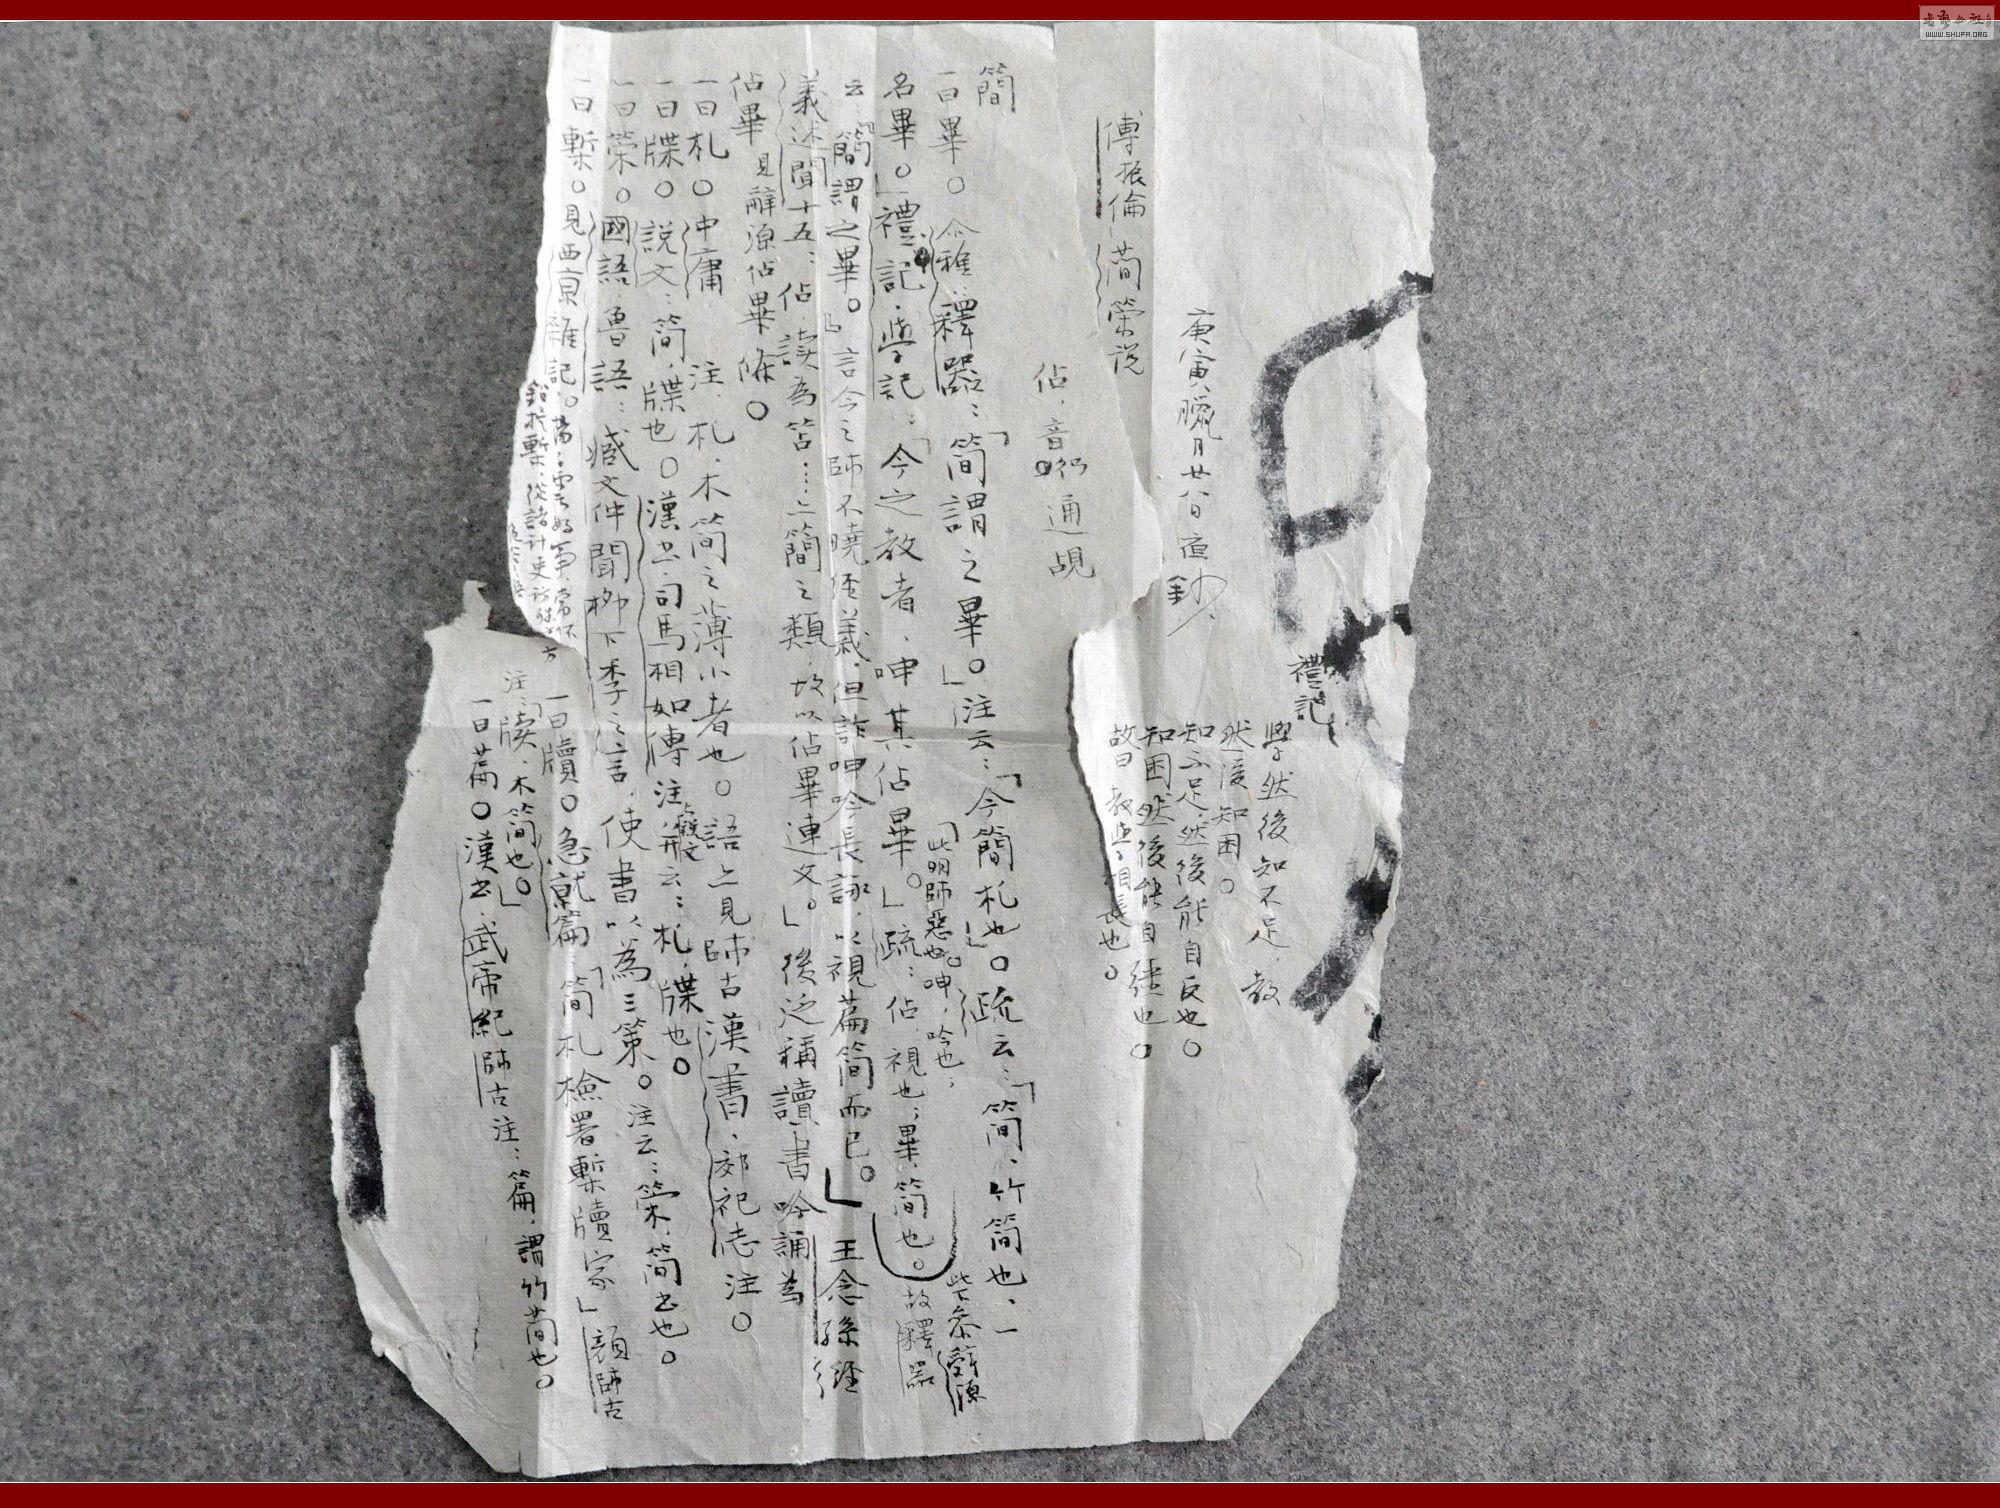 禮記
學然後知不足，教
然後知困。
知不足，然後能自反也。
知困，然後能自強也。
故曰：教學相長也。
庚寅臘月廿八日夜鈔
傅振倫 簡策说
佔，音 通覘
簡
一曰畢。尒雅：釋器：「简謂之畢。」注云：「今簡札也。」疏云：「简，竹简也，一
名畢。」禮記．學記：「今之教者，呻其佔畢。」疏：佔視也；畢，简也。故釋器
「此明師惡也。呻，吟也；
此条辭源
云「簡謂之畢。」言今之師不曉経義，但詐呻吟長詠，以視篇简而已。」王念孫経
義述聞十五：佔，读為笘……亠簡之類，故以佔畢連文。」後泛稱讀書吟誦為
佔畢見辭源佔畢條。
一曰札。中庸 注，札，木简之薄小者也。語上見師古漢書．郊祀志注。
一曰牒。说文：简，牒也。漢书司馬相如傳注，云：札，牒也。
一曰策。國語．魯語：臧文仲聞柳下季之言，使書以為三策。注云：策，简书也。
一曰槧。見西京雜記。揚子雲好事，常
鉛提槧，從諸計吏訪
一曰牘。急就篇「简札檢署槧牘家」顔師古
注：「牘，木简也。」
一曰篇。漢书．武帝紀師古注：篇，謂竹简也。
书法公社
WWW.SHUFA.ORG